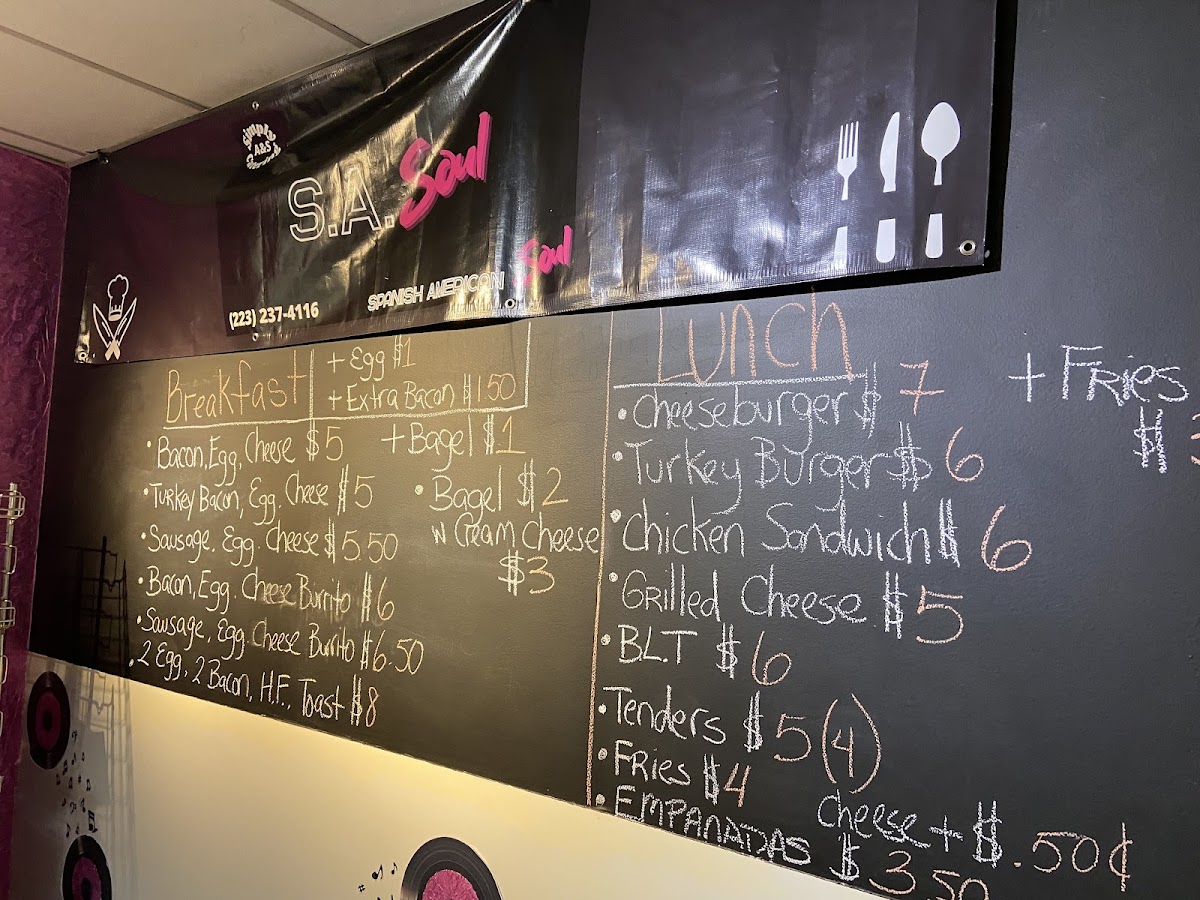 Simply
A&S
S.A. Soul
SPANISH AMERICAN Soul
(223) 237-4116
Breakfast
+ Egg $1
+ Extra Bacon $1.50
• Bacon, Egg, Cheese $5
+ Bagel $1
• Turkey Bacon, Egg. Cheese $5
• Bagel $2
w Cream Cheese
$3
• Sausage. Egg. Cheese $5.50
• Bacon, Egg. Cheese Burrito $6
• Sausage, Egg. Cheese Burrito $6.50
• 2 Egg, 2 Bacon, H.F., Toast $8
Lunch
• Cheeseburger $7
+ Fries
$3
• Turkey Burger $6
• Chicken Sandwich $6
• Grilled Cheese $5
• BLT $6
• Tenders $5 (4)
• Fries $4
Cheese + $.50¢
• EMPANADAS $3.50